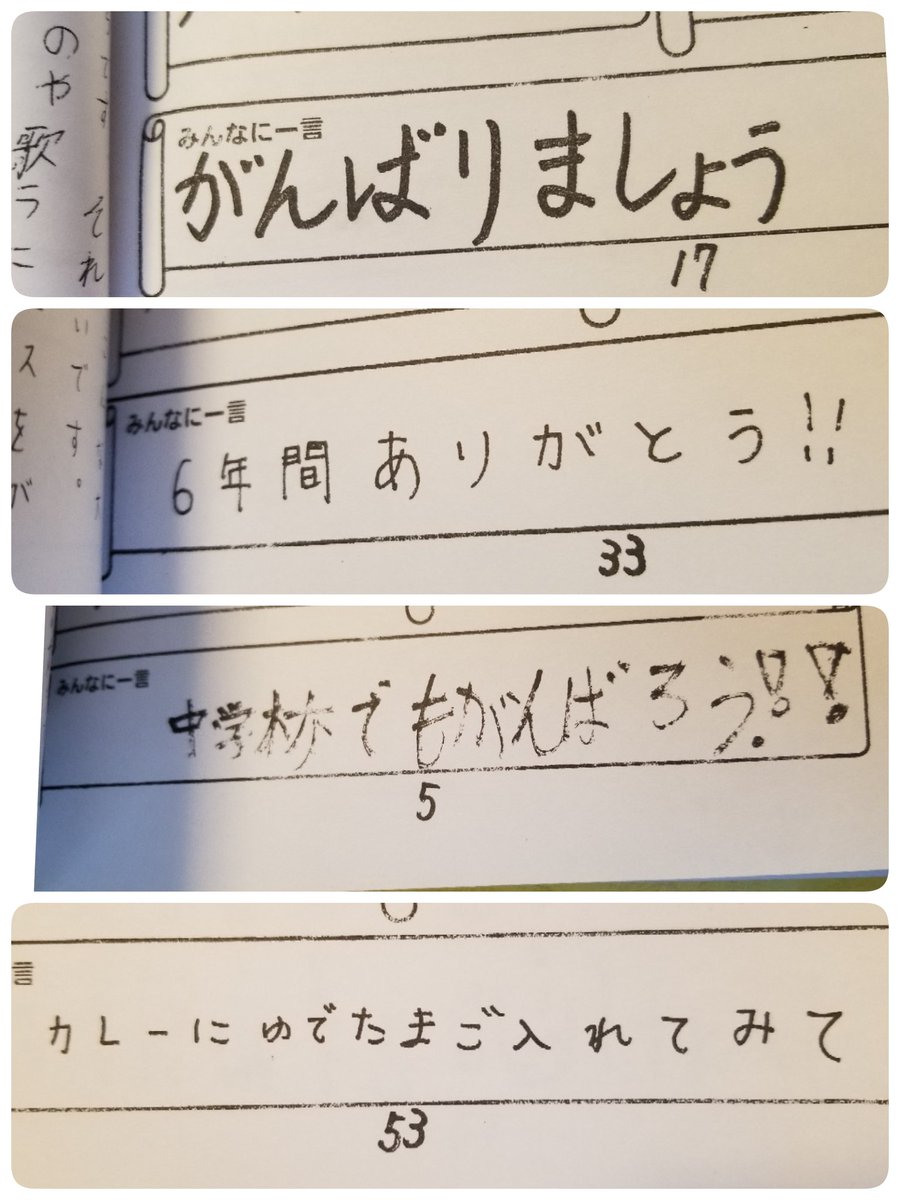 のや歌うに
です それ
みんなに一言
がんばりましょう
17
いです。
スをが
みんなに一言
6年間ありがとう!!
33
みんなに一言
中学校でもがんばろう!!
5
言
カレーにゆでたまご入れてみて
53